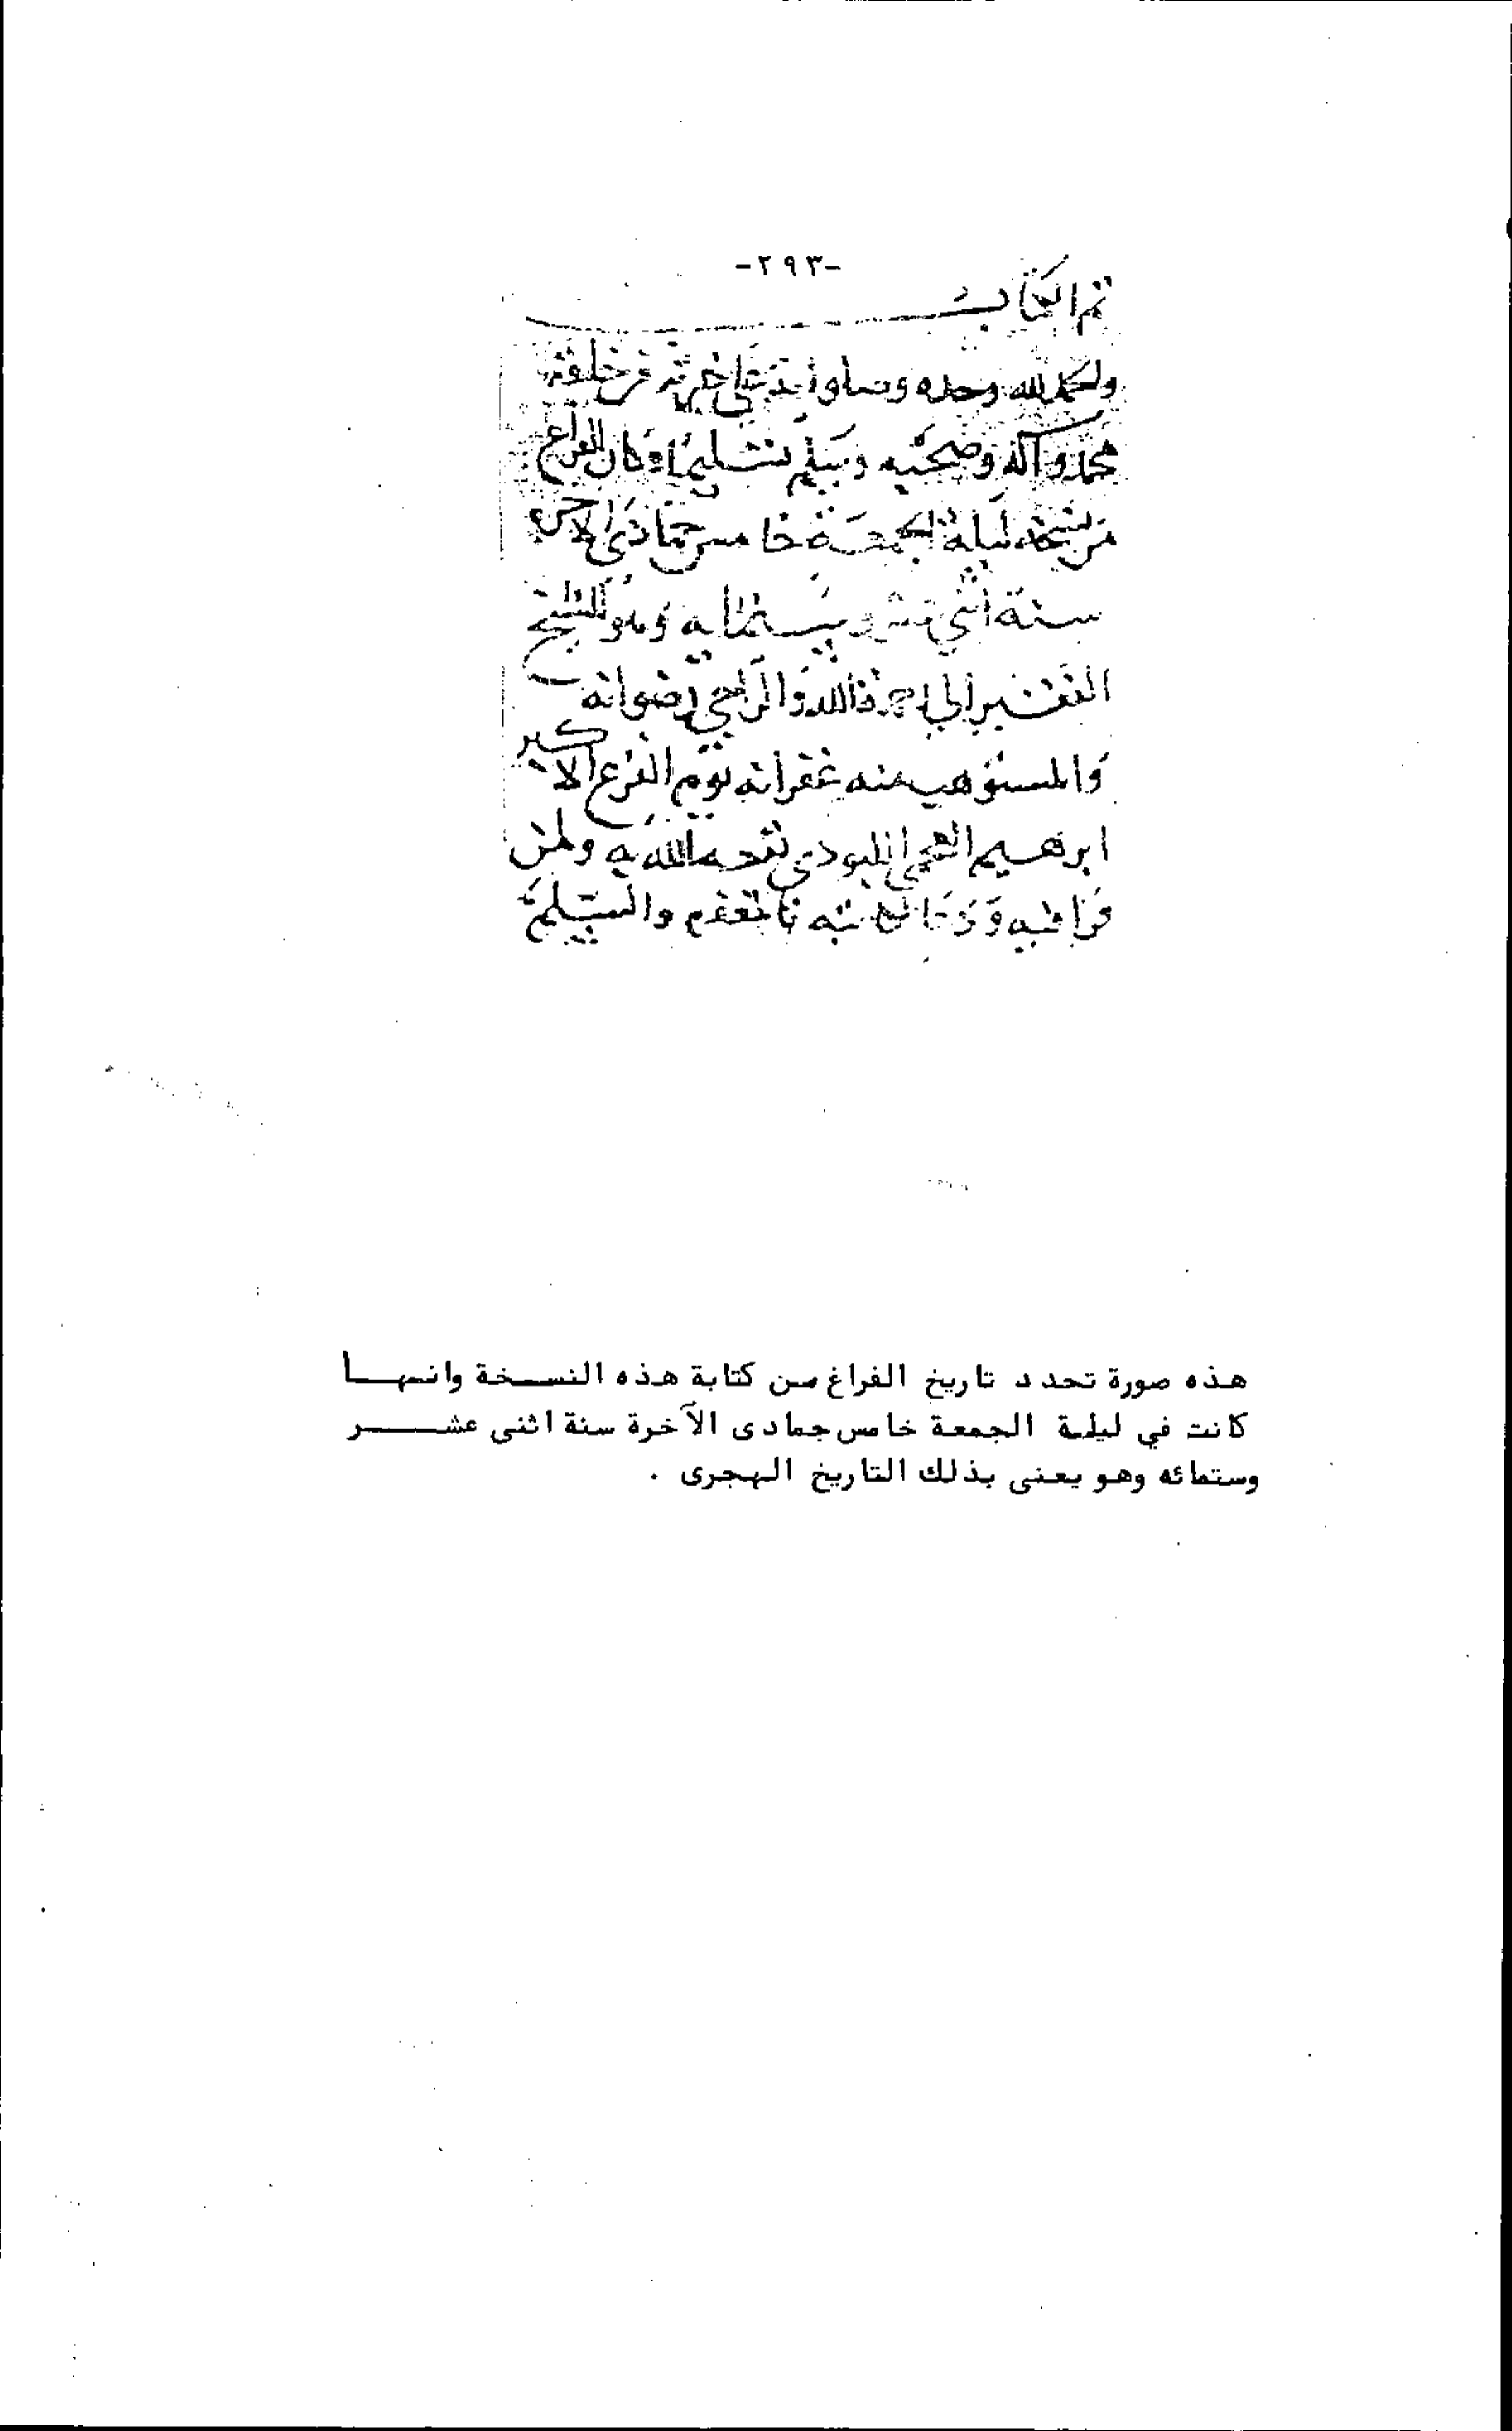 -٢٩٣-
تم الكتاب
والحمد لله وحده وصلواته على خيرته من خلقه
محمد وآله وصحبه وسلم تسليما وكان الفراغ
من نسخه ليلة الجمعة خامس جمادى الاخرة
سنة اثني عشر وستمايه
الفقير الى رحمة الله والراجي رضوانه
والمستوهب منه غفرانه يوم الفزع الاكبر
ابرهيم نفعه الله به ولمن
قرا فيه ودعا والسلم
هذه صورة تحدد تاريخ الفراغ من كتابة هذه النسخة وانها
كانت في ليلة الجمعة خامس جمادى الآخرة سنة اثنى عشر
وستمائه وهو يعنى بذلك التاريخ الهجرى .